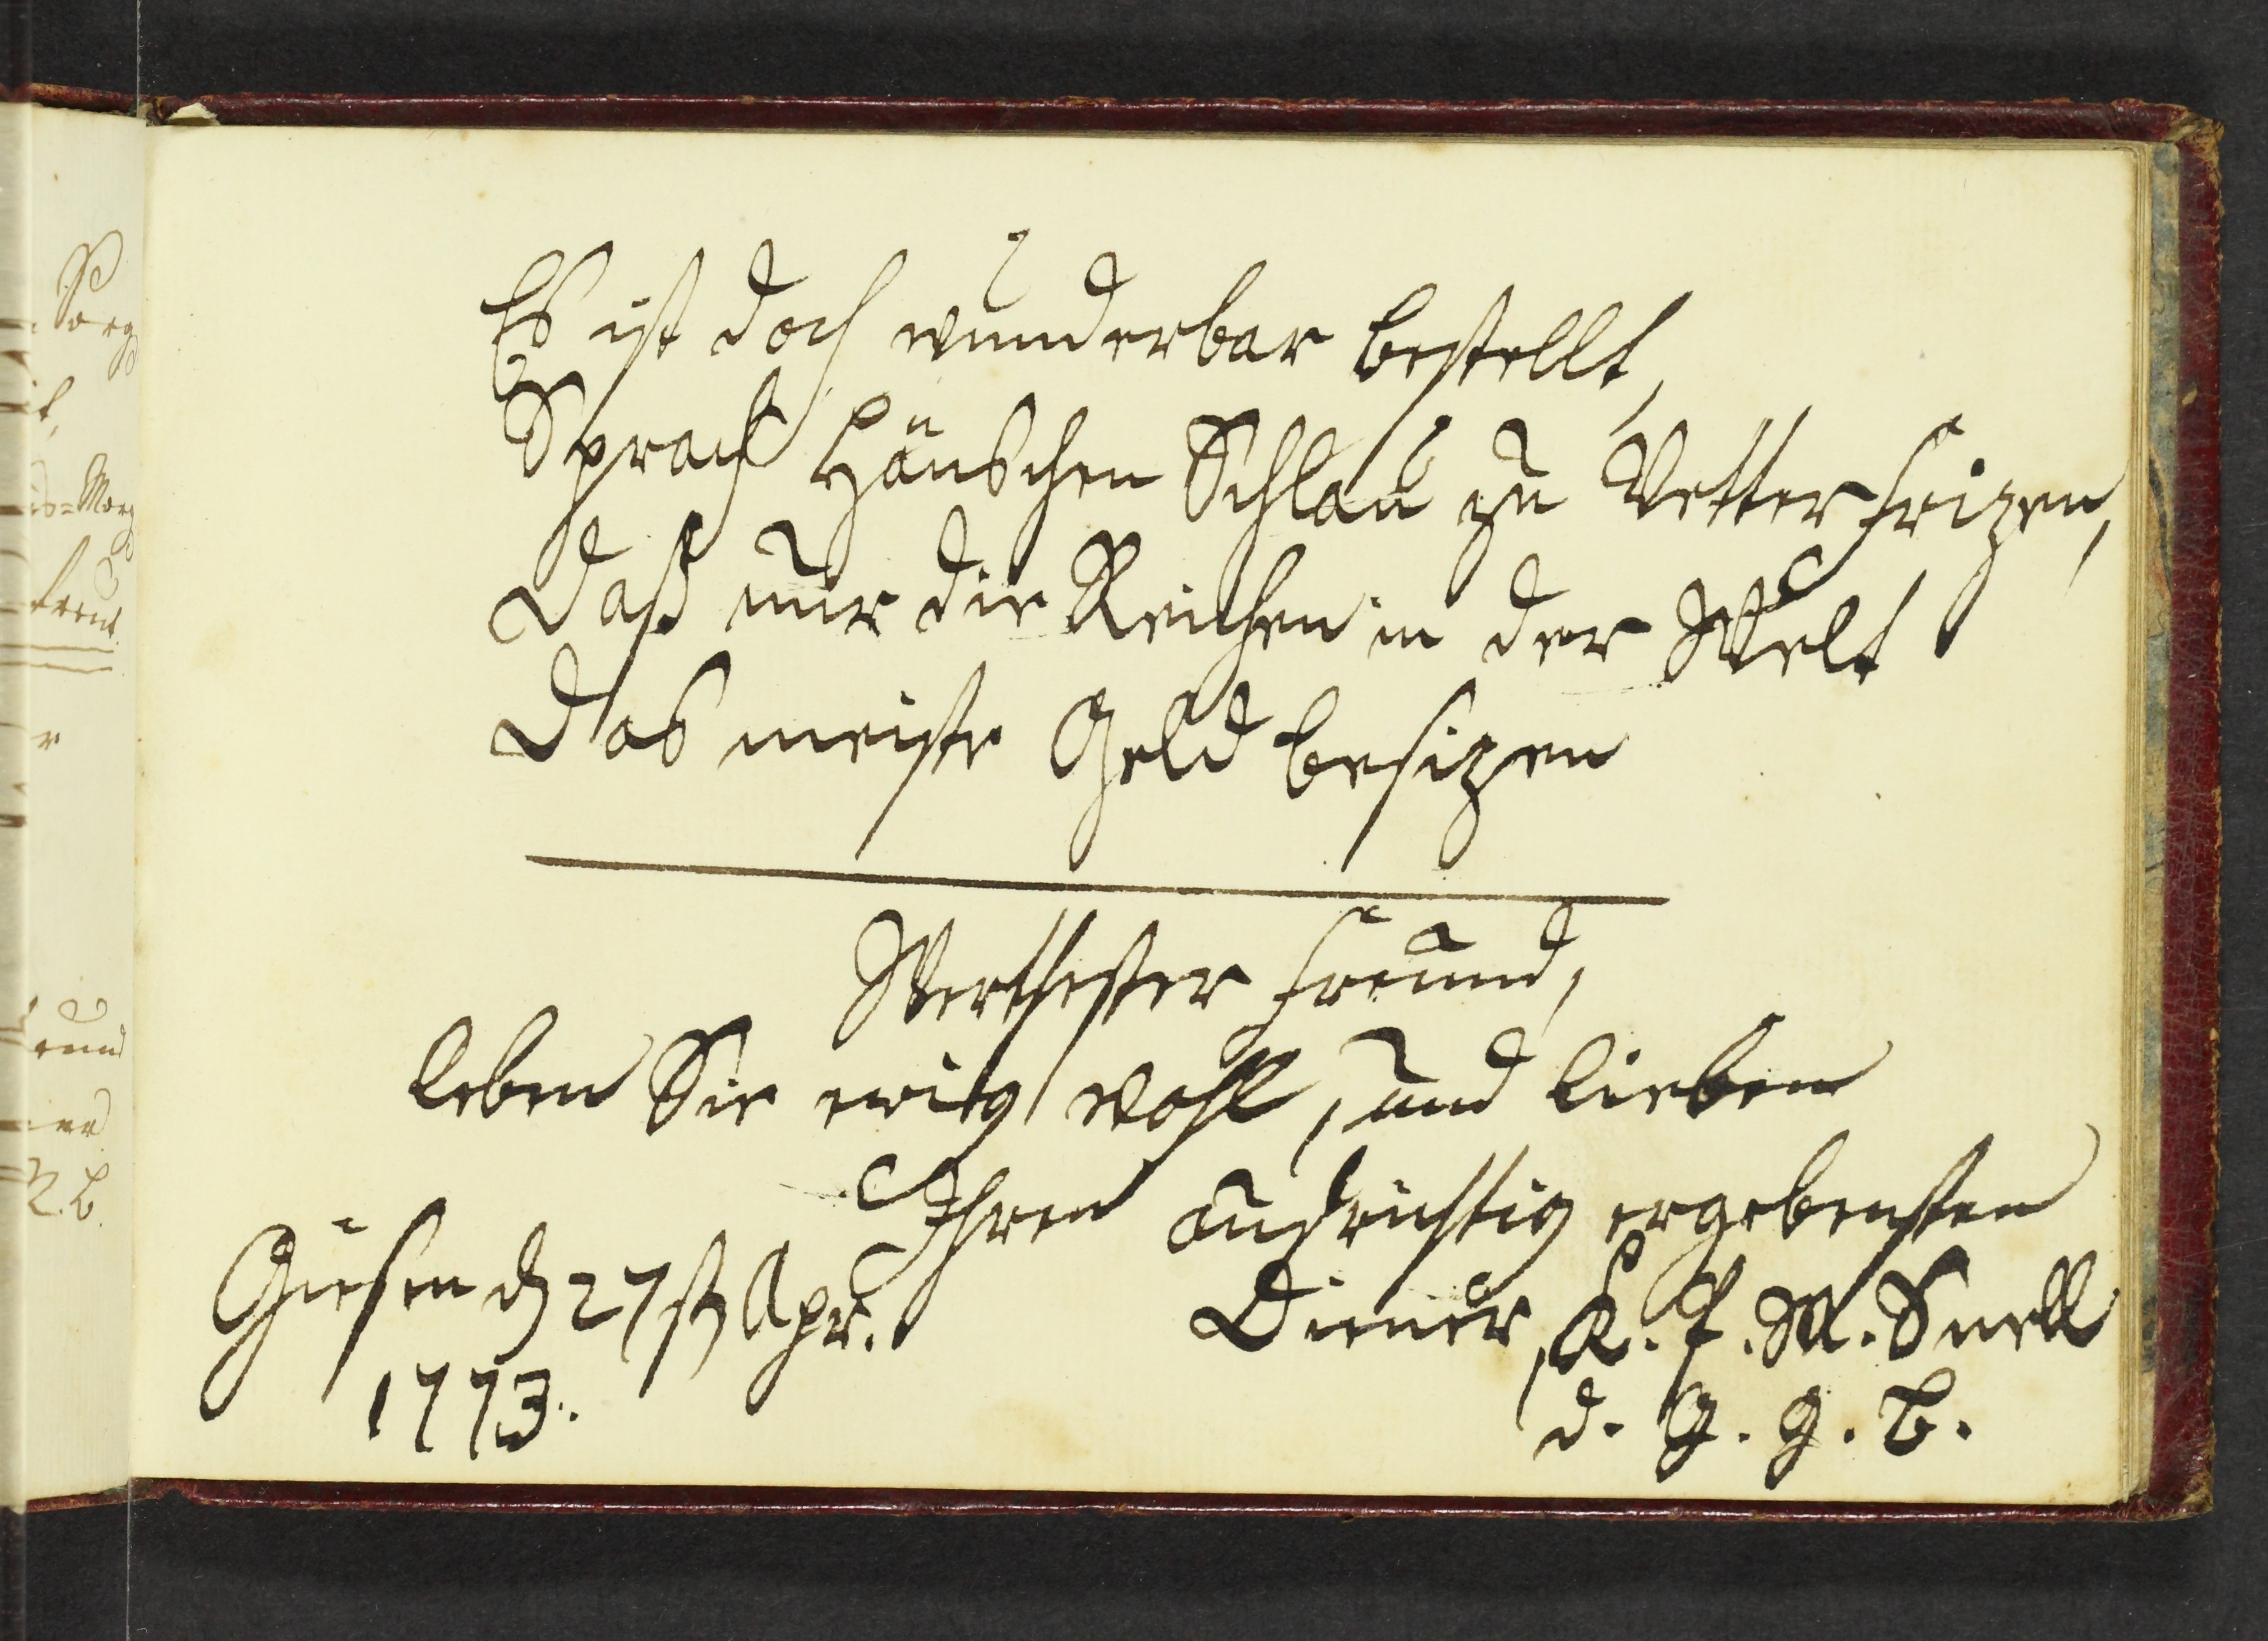 Es ist doch wunderbar bestellt,
Sprach Hänschen Schlau zu Vetter Frizen,
Daß nur die Reichen in der Welt
Das meiste Geld besizen
Werthester Freund,
leben Sie ewig wohl, und lieben
Ihren aufrichtig ergebensten
Diener, K. F. W. Snell
d. G. g. B.
Giesen d 27st Apr.
1773.